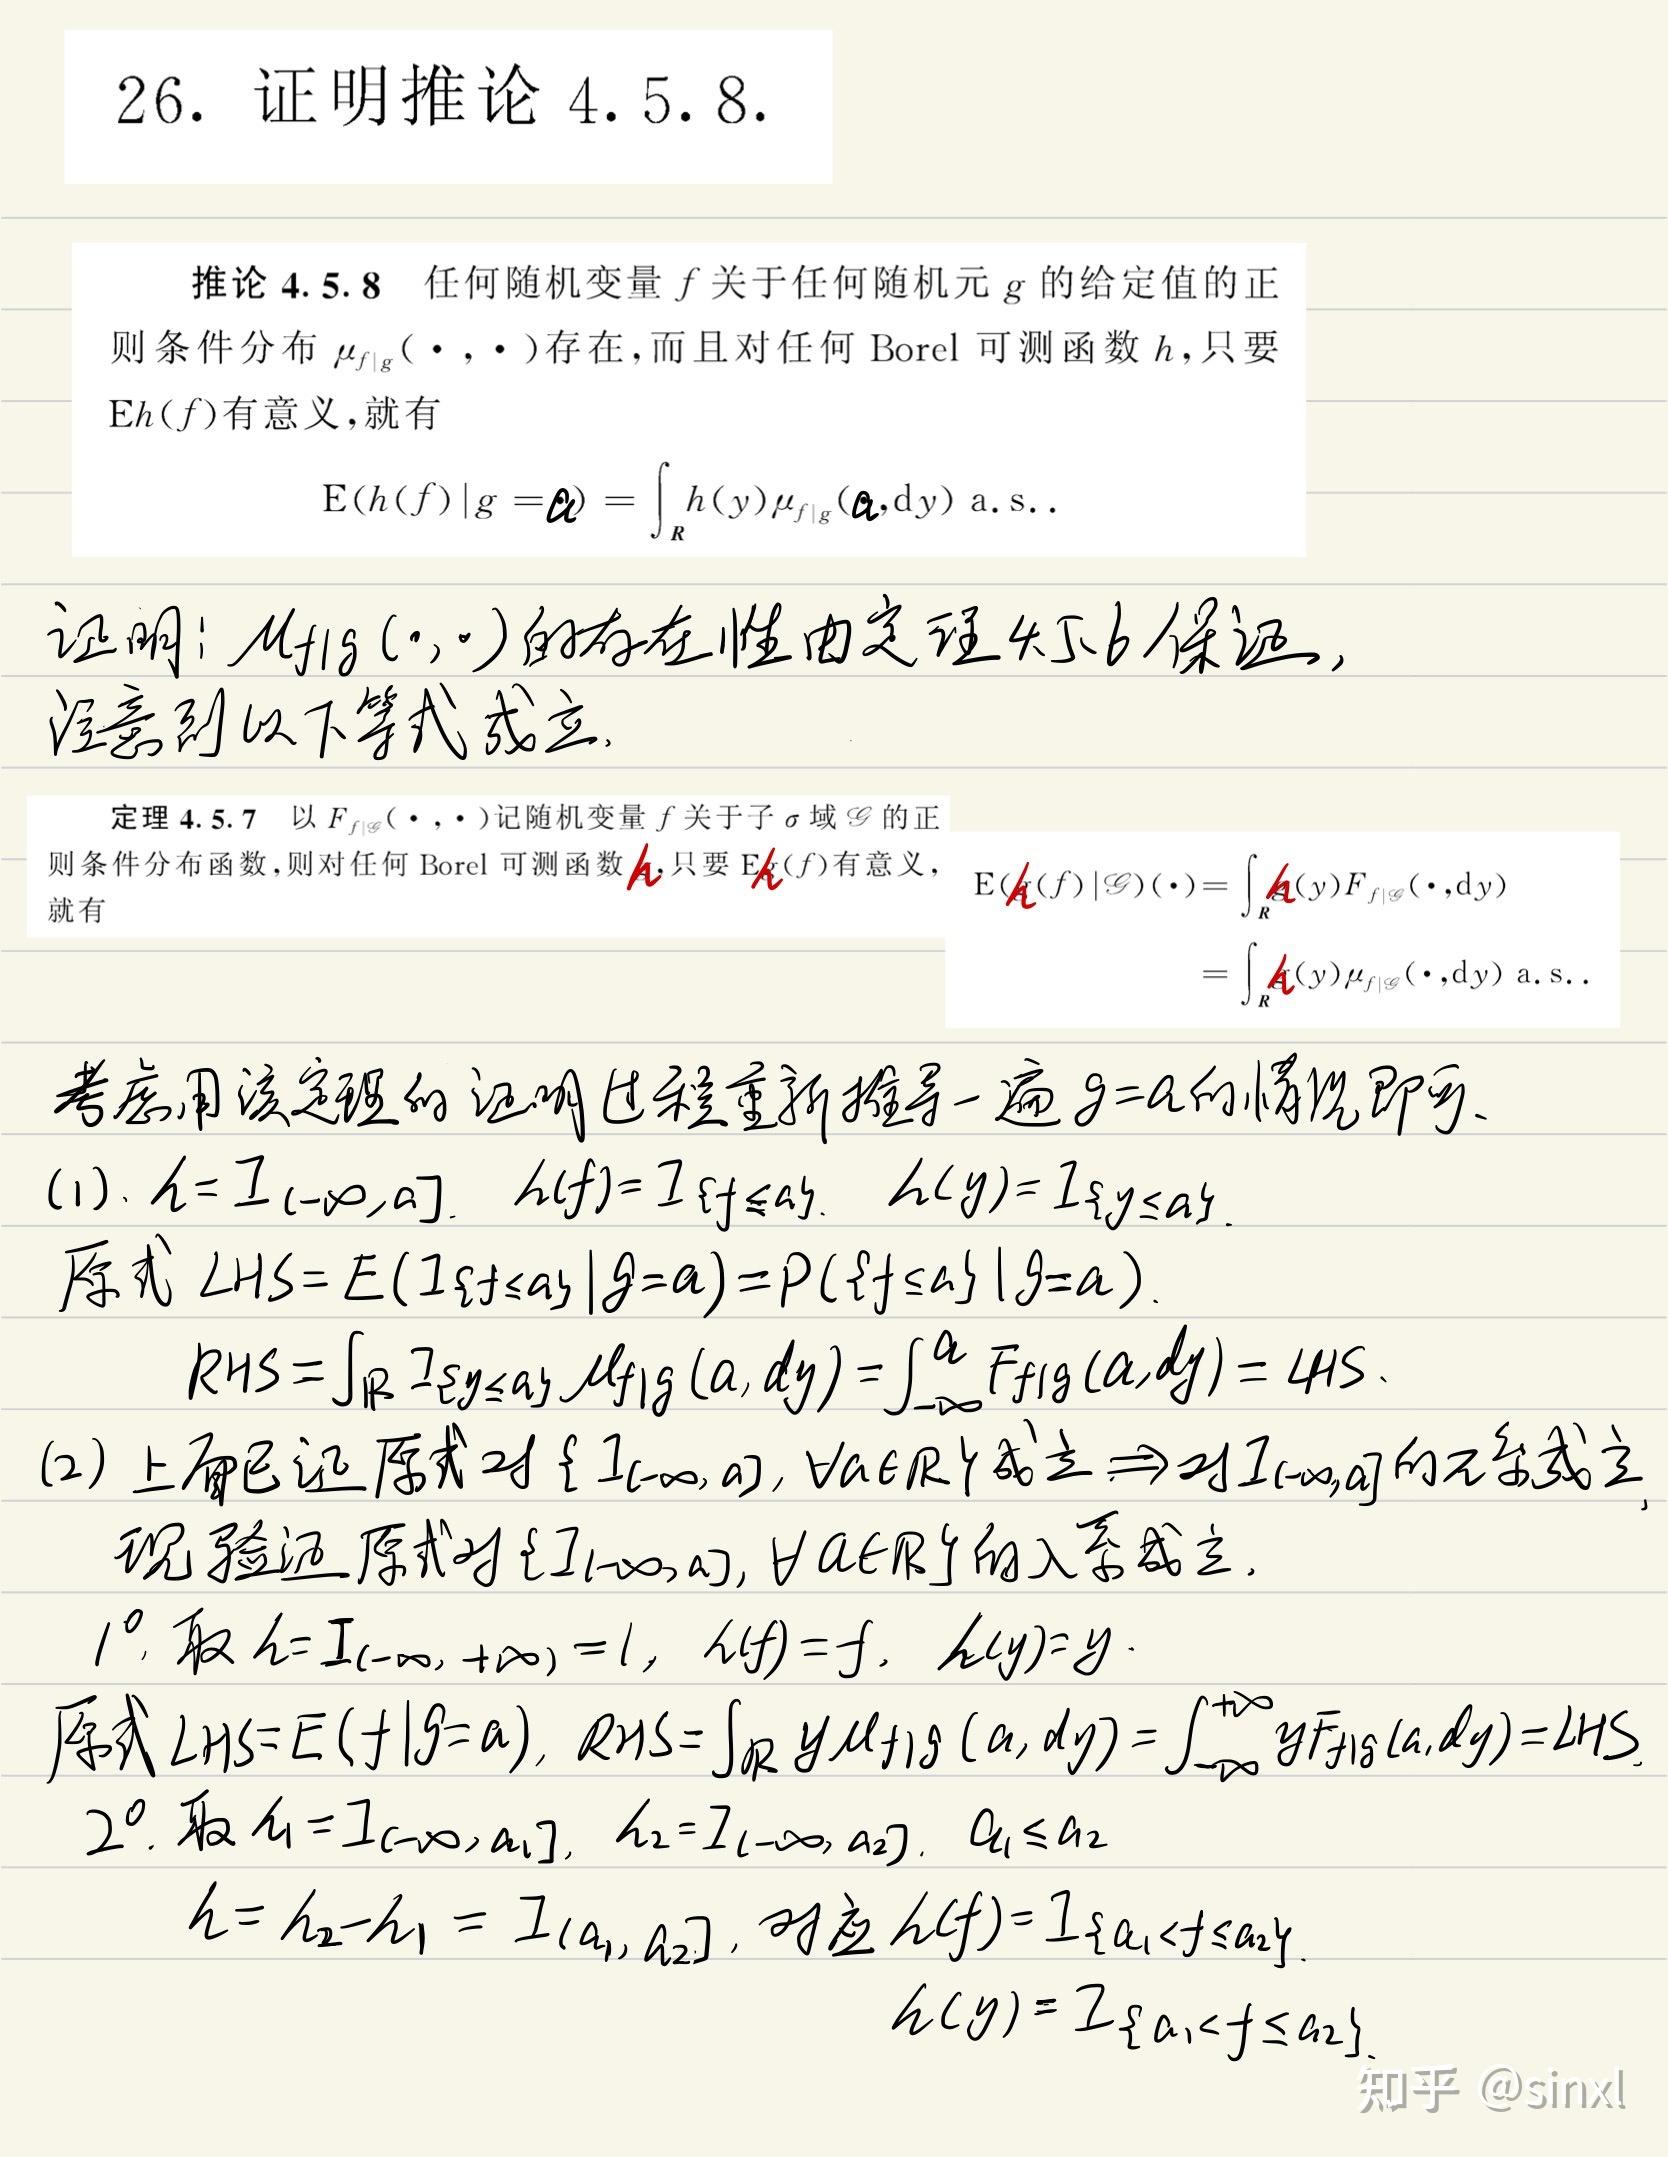 26. 证明推论 4.5.8.
推论 4.5.8 任何随机变量 f 关于任何随机元 g 的给定值的正
则条件分布 μ_{f|g}(·,·)存在,而且对任何 Borel 可测函数 h,只要
Eh(f)有意义,就有
E(h(f)|g=a) = ∫_R h(y)μ_{f|g}(a,dy) a.s..
证明: μ_{f|g}(·,·)的存在性由定理4.5.6保证,
注意到以下等式成立.
定理 4.5.7 以 F_{f|𝒢}(·,·)记随机变量 f 关于子 σ 域 𝒢 的正
则条件分布函数,则对任何 Borel 可测函数 h,只要 Eh(f)有意义,
就有
E(h(f)|𝒢)(·) = ∫_R h(y)F_{f|𝒢}(·,dy)
= ∫_R h(y)μ_{f|𝒢}(·,dy) a.s..
考虑用该定理的证明过程重新推导一遍 g=a的情况即可.
(1). h=I_{(-∞,a]}. h(f)=I_{{f≤a}}. h(y)=I_{{y≤a}}.
原式 LHS=E(I_{{f≤a}}|g=a)=P({f≤a}|g=a).
RHS=∫_ℝ I_{{y≤a}} μ_{f|g}(a,dy)=∫_{-∞}^a F_{f|g}(a,dy)=LHS.
(2) 上面已证原式对{I_{(-∞,a]},∀a∈R}成立⇒对I_{(-∞,a]}的π系成立,
现验证原式对{I_{(-∞,a]},∀a∈R}的λ系成立.
1°. 取 h=I_{(-∞,+∞)}=1, h(f)=f. h(y)=y.
原式LHS=E(f|g=a), RHS=∫_ℝ yμ_{f|g}(a,dy)=∫_{-∞}^{+∞} yF_{f|g}(a,dy)=LHS.
2°. 取 h₁=I_{(-∞,a₁]}, h₂=I_{(-∞,a₂]}. a₁≤a₂
h=h₂-h₁=I_{(a₁,a₂]}, 对应 h(f)=I_{{a₁<f≤a₂}}.
h(y)=I_{{a₁<f≤a₂}}.
知乎 @sinxl